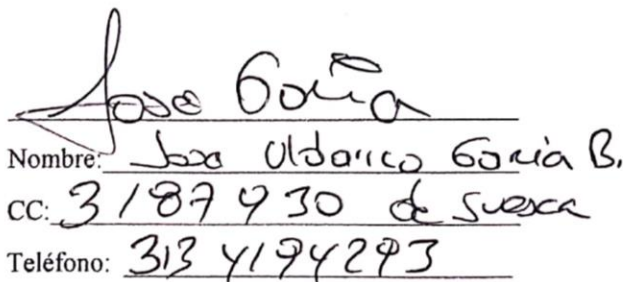 Jose Garcia
Nombre: Jose Uldarico Garcia B.
CC: 3187930 de Suesca
Teléfono: 313 4194293